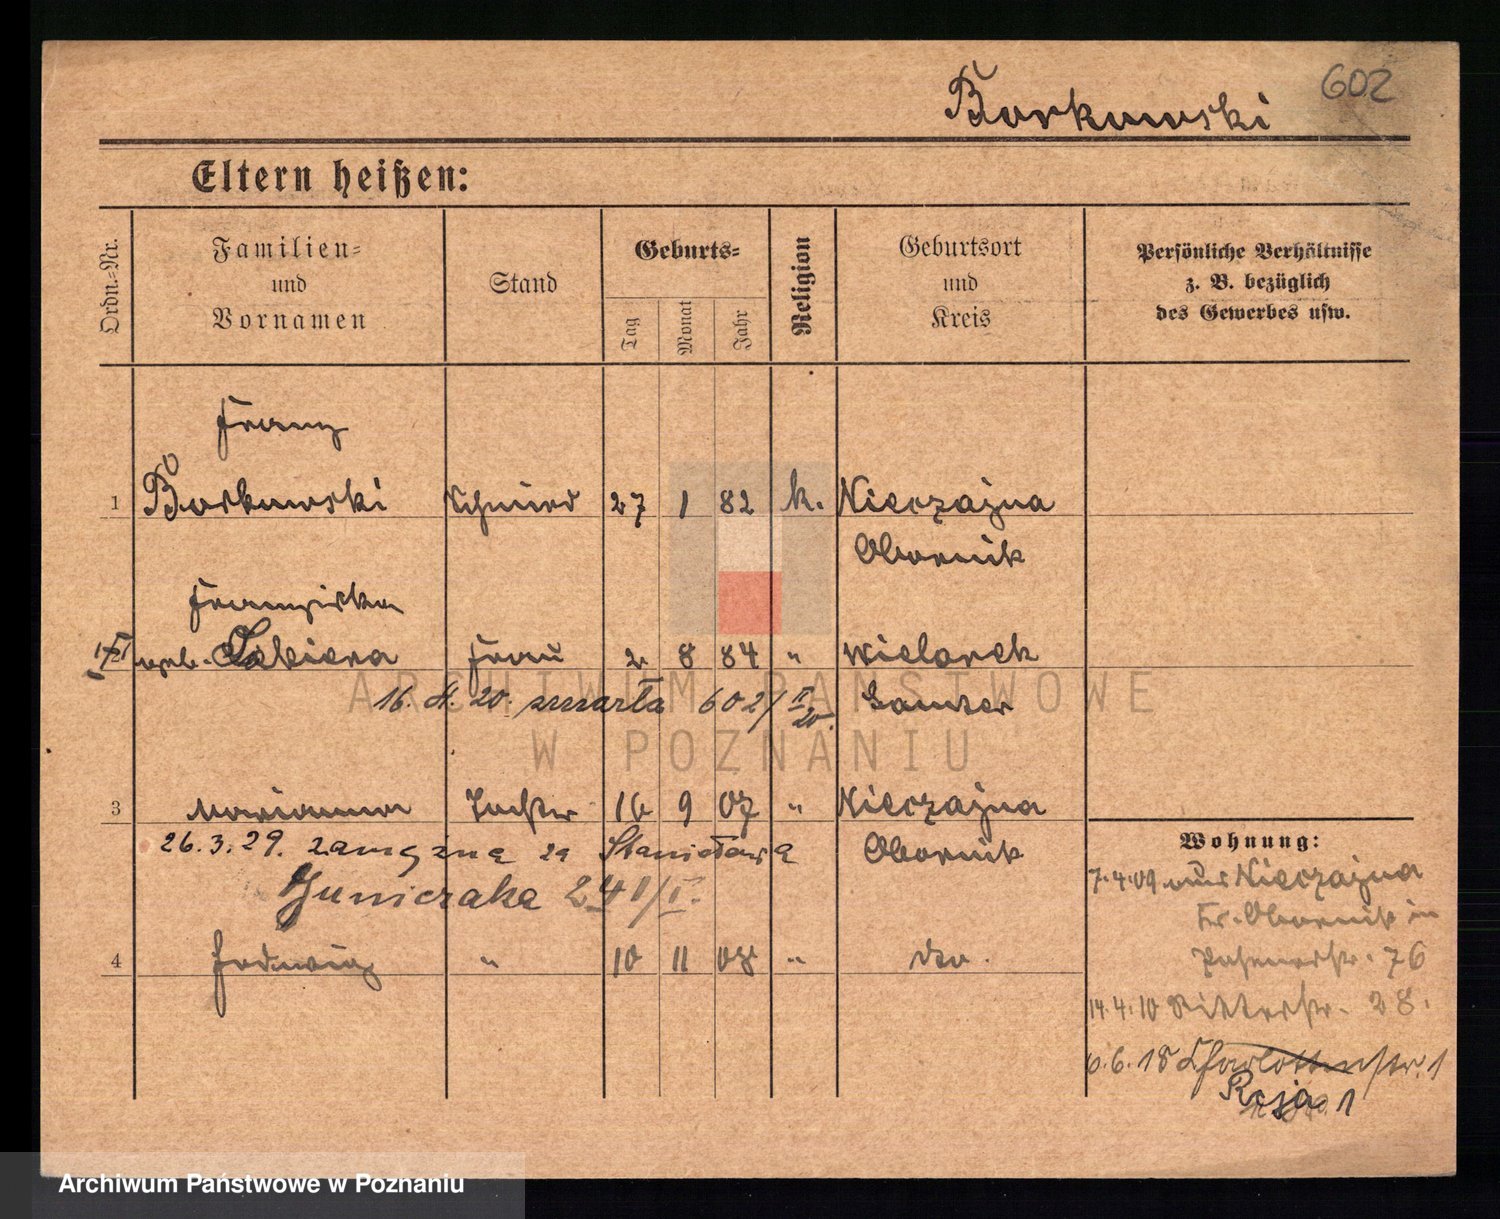 602
Borkowski
Eltern heißen:
Ordn.-Nr.
Familien-
und
Vornamen
Stand
Geburts-
Tag
Monat
Jahr
Religion
Geburtsort
und
Kreis
Persönliche Verhältnisse
z. B. bezüglich
des Gewerbes usw.
Franz
1 Borkowski Schmied 27 1 82 k. Nieczajna
Obornik
Franziska
geb. Frau 2 8 84 " Wielonek
16. 20. zmarła 602/II 20. Samter
3 Marianna Tochter 16 9 07 " Nieczajna
26.3.29. zamężna za Stanisława Obornik
241/I.
4 Hedwig " 10 11 08 " dto.
Wohnung:
7.4.09 aus Nieczajna
Kr. Obornik in
Posenerstr. 76
14.4.10 Ritterstr. 28.
6.6.18 Charlottenstr. 1
Reja 1
ARCHIWUM PAŃSTWOWE
W POZNANIU
Archiwum Państwowe w Poznaniu